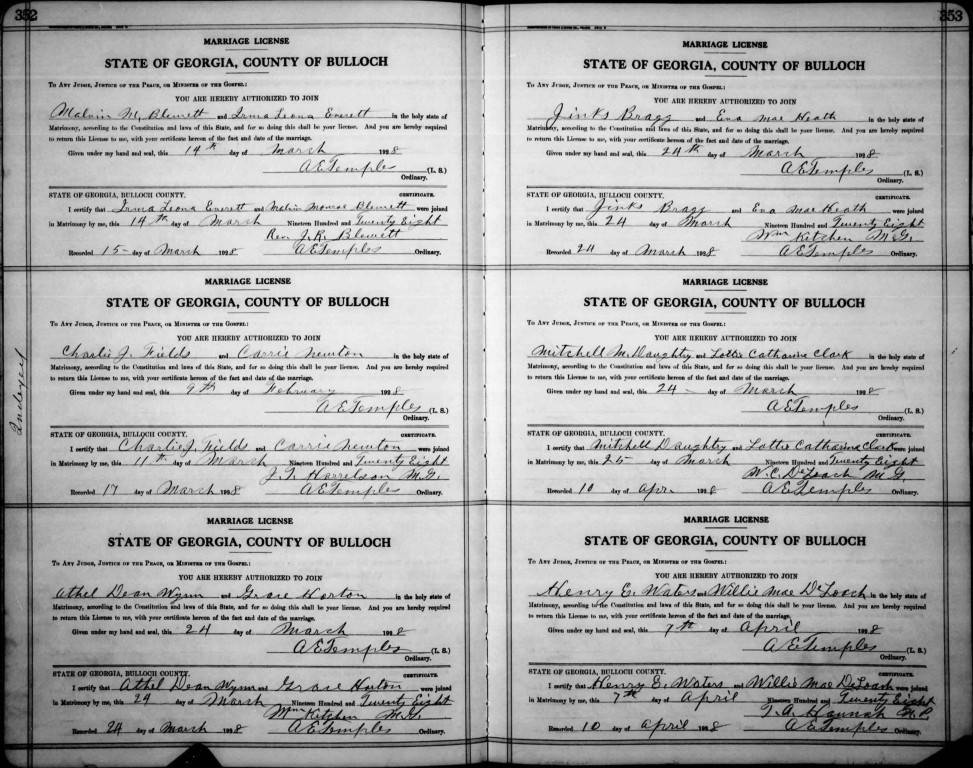 352
MARRIAGE LICENSE
STATE OF GEORGIA, COUNTY OF BULLOCH
To Any Judge, Justice of the Peace, or Minister of the Gospel:
YOU ARE HEREBY AUTHORIZED TO JOIN
Malvin M. Blewett and Irma Leona Everett in the holy state of
Matrimony, according to the Constitution and laws of this State, and for so doing this shall be your license. And you are hereby required
to return this License to me, with your certificate hereon of the fact and date of the marriage.
Given under my hand and seal, this 14th day of March 1928
A E Temples (L. S.)
Ordinary.
STATE OF GEORGIA, BULLOCH COUNTY. CERTIFICATE.
I certify that Irma Leona Everett and Malvin Monroe Blewett were joined
in Matrimony by me, this 14th day of March Nineteen Hundred and Twenty Eight
Rev. J. R. Blewett
Recorded 15 day of March 1928 A E Temples Ordinary.
MARRIAGE LICENSE
STATE OF GEORGIA, COUNTY OF BULLOCH
To Any Judge, Justice of the Peace, or Minister of the Gospel:
YOU ARE HEREBY AUTHORIZED TO JOIN
Charlie J. Fields and Carrie Newton in the holy state of
Matrimony, according to the Constitution and laws of this State, and for so doing this shall be your license. And you are hereby required
to return this License to me, with your certificate hereon of the fact and date of the marriage.
Given under my hand and seal, this 9th day of February 1928
A E Temples (L. S.)
Ordinary.
Indexed
STATE OF GEORGIA, BULLOCH COUNTY. CERTIFICATE.
I certify that Charlie J. Fields and Carrie Newton were joined
in Matrimony by me, this 11th day of March Nineteen Hundred and Twenty Eight
J. F. Harrelson M.G.
Recorded 17 day of March 1928 A E Temples Ordinary.
MARRIAGE LICENSE
STATE OF GEORGIA, COUNTY OF BULLOCH
To Any Judge, Justice of the Peace, or Minister of the Gospel:
YOU ARE HEREBY AUTHORIZED TO JOIN
Athel Dean Wynn and Grace Horton in the holy state of
Matrimony, according to the Constitution and laws of this State, and for so doing this shall be your license. And you are hereby required
to return this License to me, with your certificate hereon of the fact and date of the marriage.
Given under my hand and seal, this 24 day of March 1928
A E Temples (L. S.)
Ordinary.
STATE OF GEORGIA, BULLOCH COUNTY. CERTIFICATE.
I certify that Athel Dean Wynn and Grace Horton were joined
in Matrimony by me, this 24 day of March Nineteen Hundred and Twenty Eight
Wm Kitchen M.G.
Recorded 24 day of March 1928 A E Temples Ordinary.
353
MARRIAGE LICENSE
STATE OF GEORGIA, COUNTY OF BULLOCH
To Any Judge, Justice of the Peace, or Minister of the Gospel:
YOU ARE HEREBY AUTHORIZED TO JOIN
Jinks Bragg and Eva Mae Heath in the holy state of
Matrimony, according to the Constitution and laws of this State, and for so doing this shall be your license. And you are hereby required
to return this License to me, with your certificate hereon of the fact and date of the marriage.
Given under my hand and seal, this 24th day of March 1928
A E Temples (L. S.)
Ordinary.
STATE OF GEORGIA, BULLOCH COUNTY. CERTIFICATE.
I certify that Jinks Bragg and Eva Mae Heath were joined
in Matrimony by me, this 24 day of March Nineteen Hundred and Twenty Eight
Wm Kitchen M.G.
Recorded 24 day of March 1928 A E Temples Ordinary.
MARRIAGE LICENSE
STATE OF GEORGIA, COUNTY OF BULLOCH
To Any Judge, Justice of the Peace, or Minister of the Gospel:
YOU ARE HEREBY AUTHORIZED TO JOIN
Mitchell M. Daughty and Lottie Catharine Clark in the holy state of
Matrimony, according to the Constitution and laws of this State, and for so doing this shall be your license. And you are hereby required
to return this License to me, with your certificate hereon of the fact and date of the marriage.
Given under my hand and seal, this 24 day of March 1928
A E Temples (L. S.)
Ordinary.
STATE OF GEORGIA, BULLOCH COUNTY. CERTIFICATE.
I certify that Mitchell Daughtry and Lottie Catharine Clark were joined
in Matrimony by me, this 25 day of March Nineteen Hundred and Twenty Eight
W. C. DeLoach M.G.
Recorded 10 day of Apr. 1928 A E Temples Ordinary.
MARRIAGE LICENSE
STATE OF GEORGIA, COUNTY OF BULLOCH
To Any Judge, Justice of the Peace, or Minister of the Gospel:
YOU ARE HEREBY AUTHORIZED TO JOIN
Henry E. Waters and Willie Mae DeLoach in the holy state of
Matrimony, according to the Constitution and laws of this State, and for so doing this shall be your license. And you are hereby required
to return this License to me, with your certificate hereon of the fact and date of the marriage.
Given under my hand and seal, this 7th day of April 1928
A E Temples (L. S.)
Ordinary.
STATE OF GEORGIA, BULLOCH COUNTY. CERTIFICATE.
I certify that Henry E. Waters and Willie Mae DeLoach were joined
in Matrimony by me, this 7th day of April Nineteen Hundred and Twenty Eight
T. A. Hannah
Recorded 10 day of April 1928 A E Temples Ordinary.